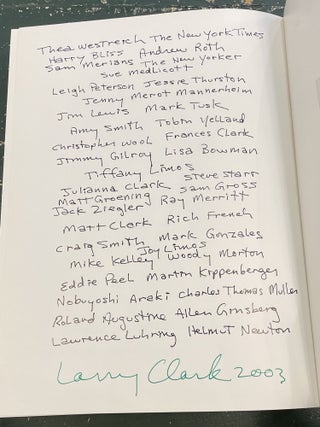 Thea Westreich The New York Times
Harry Bliss Andrew Roth
Sam Merians The New Yorker
Sue Medlicott
Leigh Peterson Jessie Thurston
Jenny Merot Mannerheim
Jim Lewis Mark Tusk
Amy Smith Tobin Yelland
Christopher Wool Frances Clark
Jimmy Gilroy Lisa Bowman
Tiffany Limos
Julianna Clark Steve Starr
Matt Groening Sam Gross
Jack Ziegler Ray Merritt
Matt Clark Rich French
Craig Smith Mark Gonzales
Joy Limos
Mike Kelley Woody Morton
Eddie Peel Martin Kippenberger
Nobuyoshi Araki Charles Thomas Mullen
Roland Augustine Allen Ginsberg
Lawrence Luhring Helmut Newton
Larry Clark 2003